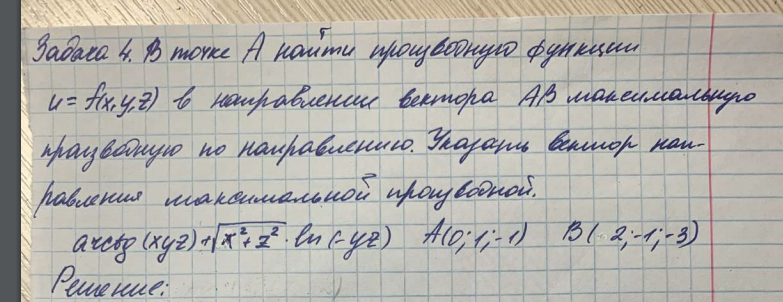 Задача 4. В точке А найти производную функции
u = f(x,y,z) в направлении вектора АВ максимальную
производную по направлению. Указать вектор нап-
равления максимальной производной.
arcctg(xyz)+√x²+z² · ln(-yz) A(0;1;-1) B(-2;-1;-3)
Решение: